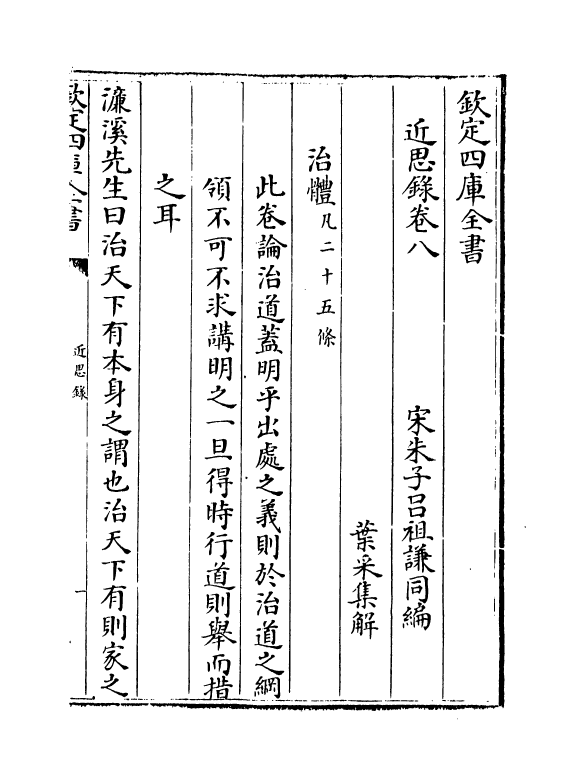 欽定四庫全書
近思錄卷八
宋朱子呂祖謙同編
葉采集解
治體凡二十五條
此卷論治道蓋明乎出處之義則於治道之綱
領不可不求講明之一旦得時行道則舉而措
之耳
濂溪先生曰治天下有本身之謂也治天下有則家之
欽定四庫全書
近思錄
一